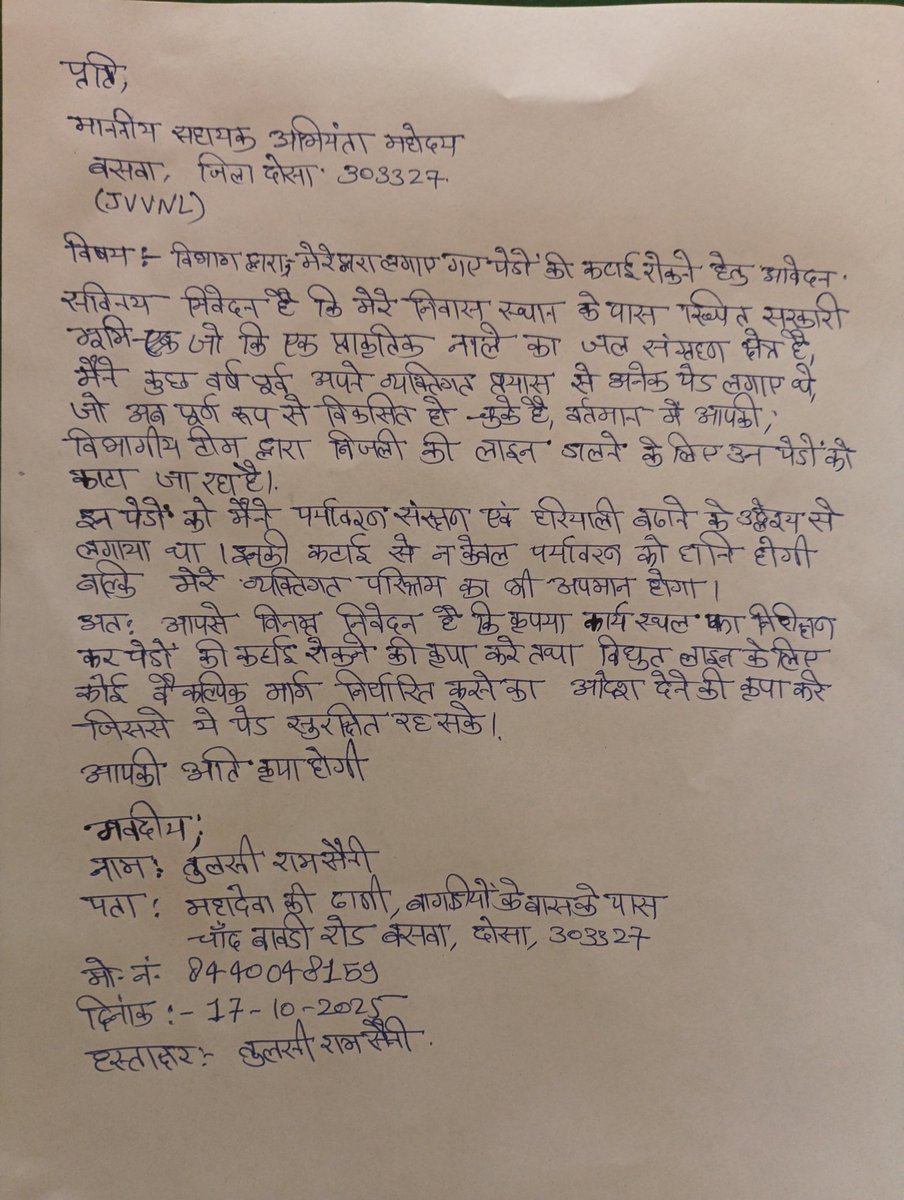 प्रति,
माननीय सहायक अभियंता महोदय
बसवा, जिला दौसा 303327.
(JVVNL)
विषय:- विभाग द्वारा, मेरे द्वारा लगाए गए पेडों की कटाई रोकने हेतु आवेदन.
सविनय निवेदन है कि मेरे निवास स्थान के पास स्थित सरकारी
भूमि-एक जो कि एक प्राकृतिक नाले का जल संग्रहण क्षेत्र है,
मैंने कुछ वर्ष पूर्व अपने व्यक्तिगत प्रयास से अनेक पेड लगाए थे,
जो अब पूर्ण रूप से विकसित हो चुके है, वर्तमान में आपकी,
विभागीय टीम द्वारा बिजली की लाइन डालने के लिए उन पेडों को
काटा जा रहा है।
इन पेडों को मैंने पर्यावरण संरक्षण एवं हरियाली बढाने के उद्देश्य से
लगाया था। इनकी कटाई से न केवल पर्यावरन को हानि होगी
बल्कि मेरे व्यक्तिगत परिश्रम का भी अपमान होगा।
अतः आपसे विनम्र निवेदन है कि कृपया कार्य स्थल का निरीक्षण
कर पेडों की कटाई रोकने की कृपा करे तथा विधुत लाइन के लिए
कोई वैकल्पिक मार्ग निर्धारित करने का आदेश देने की कृपा करे
जिससे ये पेड सुरक्षित रह सके।
आपकी अति कृपा होगी
भवदीय,
नाम: तुलसी राम सैनी
पता: महादेवा की ढाणी, बागडीयों के बास के पास
चाँद बावडी रोड बसवा, दौसा, 303327
मो. नं. 8440048159
दिनांक:- 17-10-2025
हस्ताक्षर:- तुलसी राम सैनी.